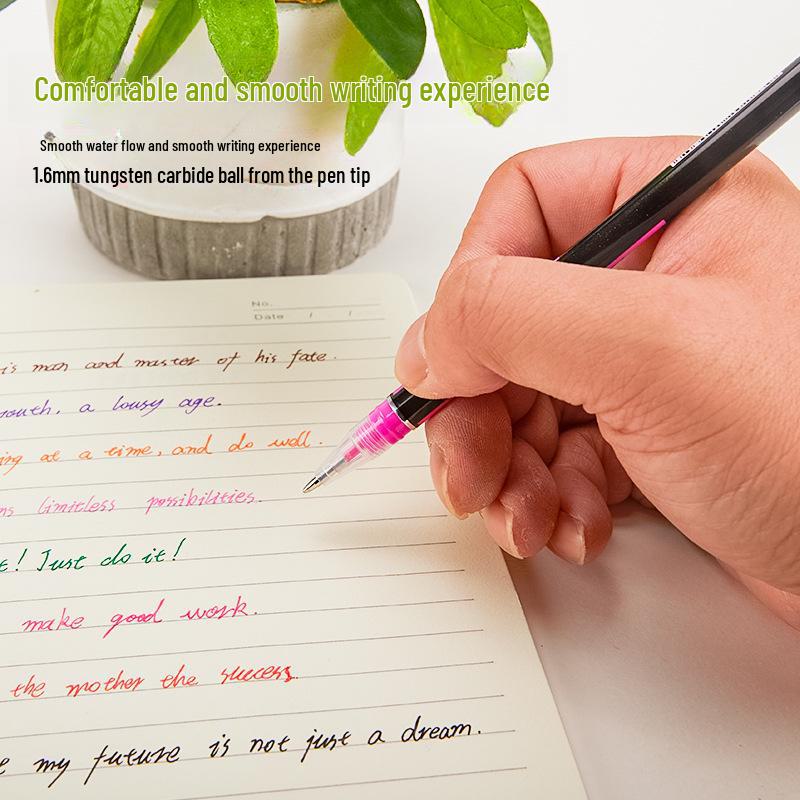 Comfortable and smooth writing experience
Smooth water flow and smooth writing experience
1.6mm tungsten carbide ball from the pen tip
No.
Date / /
is man and master of his fate.
youth, a lousy age.
ing at a time, and do well.
ns limitless possibilities.
t! Just do it!
make good work.
the mother the success.
e my future is not just a dream.